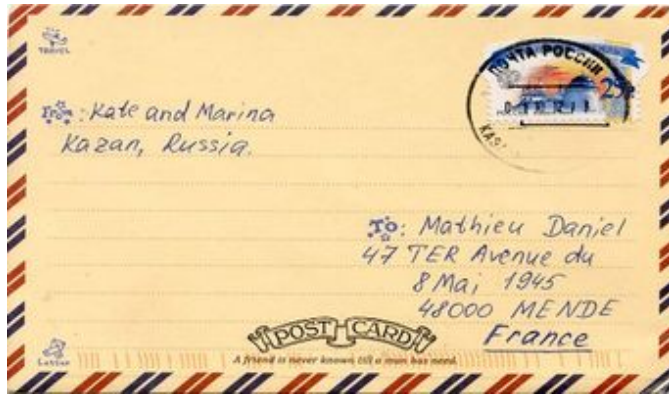 TRAVEL
ПОЧТА РОССИИ
25
From: Kate and Marina
Kazan, Russia.
To: Mathieu Daniel
47 TER Avenue du
8 Mai 1945
48000 MENDE
France
POST CARD
A friend is never known till a man has need.
Letter